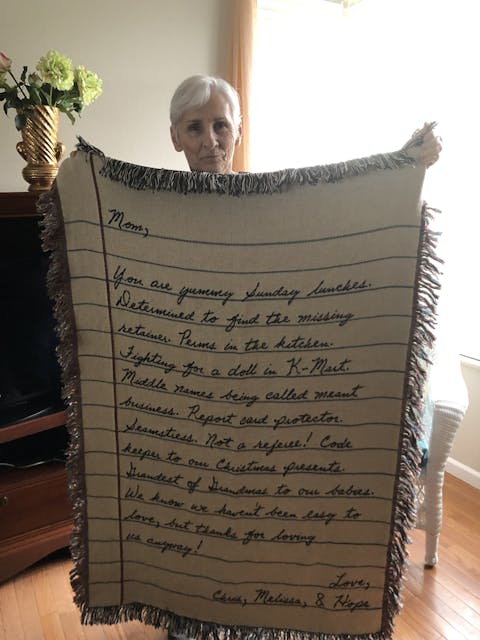 Mom,
You are yummy Sunday lunches.
Determined to find the missing
retainer. Perms in the kitchen.
Fighting for a doll in K-Mart.
Middle names being called meant
business. Report card protector.
Seamstress. Not a referee! Code
keeper to our Christmas presents.
Grandest of Grandmas to our babies.
We know we haven't been easy to
love, but thanks for loving
us anyway!
Love,
Chris, Melissa, & Hope